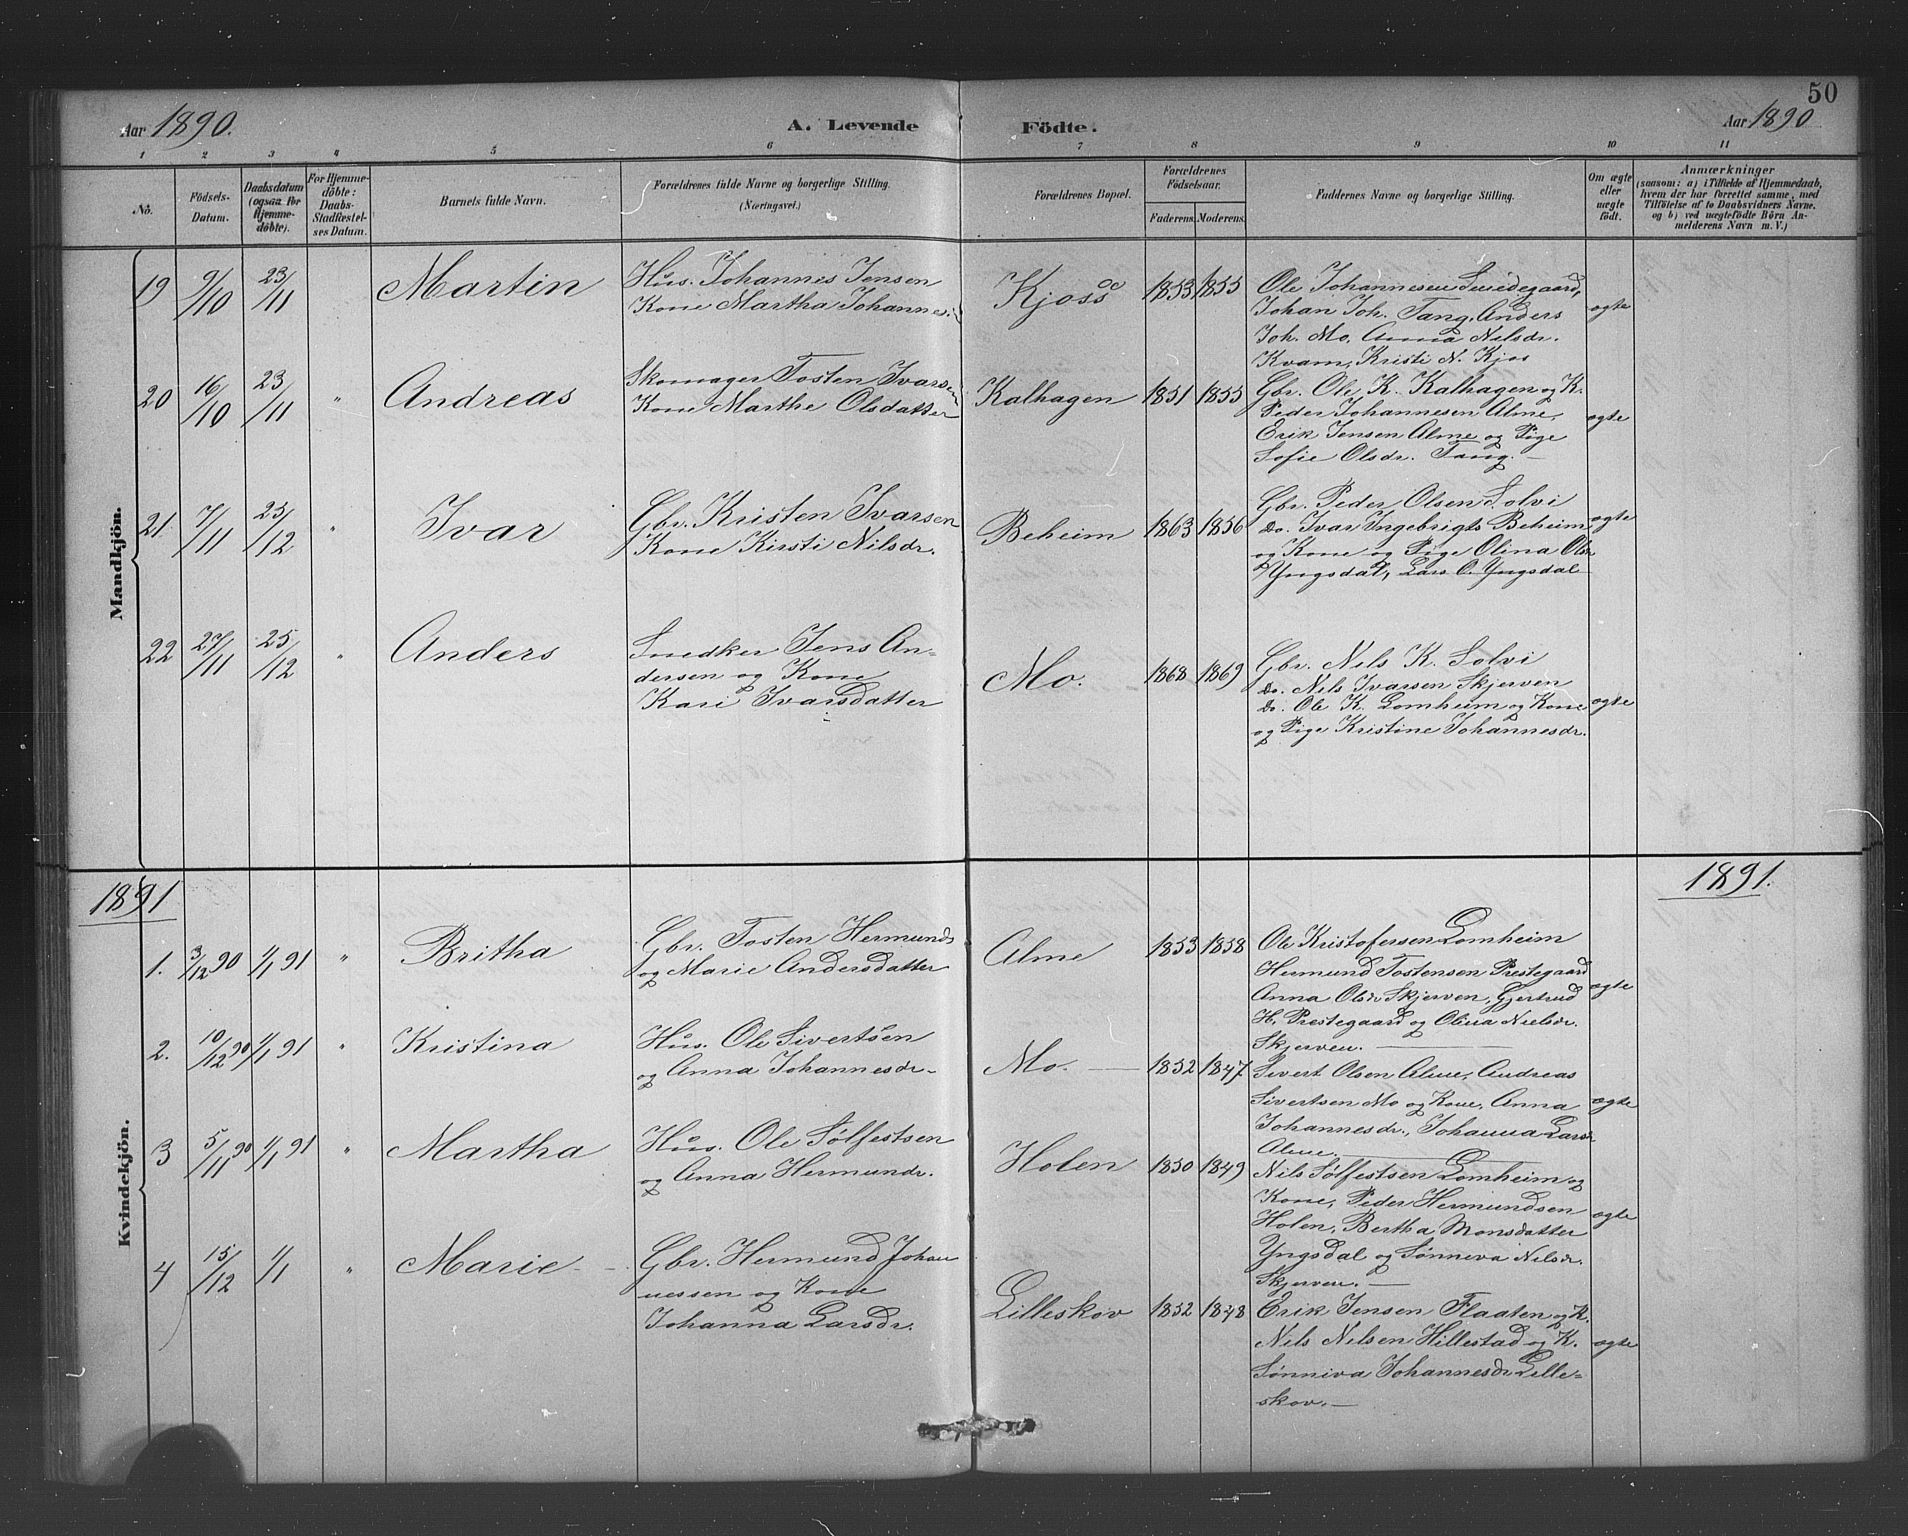 50
Aar 1890.
A. Levende Födte.
Aar 1890
1 2 3 4 5 6 7 8 9 10 11
No.
Födsels-Datum.
Daabsdatum (ogsaa for Hjemme-döbte).
For Hjemme-döbte: Daabs-Stadfæstel-ses Datum.
Barnets fulde Navn.
Forældrenes fulde Navne og borgerlige Stilling.
(Næringsvei.)
Forældrenes Bopæl.
Forældrenes Födselsaar.
Faderens. Moderens.
Faddernes Navne og borgerlige Stilling.
Om ægte eller uægte födt.
Anmærkninger
(saasom: a) i Tilfælde af Hjemmedaab,
hvem der har forrettet samme, med
Tilföielse af to Daabsvidners Navne.
og b) ved uægtefödte Börn An-
melderens Navn m. V.)
Mandkjön.
19 9/10 23/11 Martin
Hus. Johannes Jensen
Kone Martha Johannes
Kjos 1853 1855
Ole Johannesen
Johan Joh. Tang, Anders
Joh. Mo, Anna Nilsdr.
Kvam, Kristi N. Kjos
ægte
20 16/10 23/11 " Andreas
Skomager Tosten Ivarsen
Kone Marthe Olsdatter
Kalhagen 1851 1855
Gbr. Ole K. Kalhagen og K.
Peder Johannesen Alme,
Erik Jensen Alme og Pige
Sofie Olsdr. Tang. –
ægte
21 7/11 23/12 " Ivar
Gbr. Kristen Ivarsen
Kone Kirsti Nilsdr.
Beheim 1863 1856
Gbr. Peder Olsen Solvi
Do. Ivar Ingebrigts Beheim
og Kone og Pige Olina Olsdr
Yngsdal, Lars O. Yngsdal
ægte
22 27/11 25/12 " Anders
Snedker Jens An-
dersen og Kone
Kari Ivarsdatter
Mo. 1868 1869
Gbr. Nils K. Solvi
Do. Nils Ivarsen Skjerven
Do. Ole K. Lomheim og Kone
og Pige Kristine Johannesdr.
ægte
1891
1891.
Kvindekjön.
1. 3/12 90 1/1 91 " Britha
Gbr. Tosten Hermunds
og Marie Andersdatter
Alme 1853 1858
Ole Kristofersen Lomheim
Hermund Tostensen Prestegaard
Anna Olsdr Skjerven, Gjertrud
H. Prestegaard og Olina Nielsdr.
Skjerven. –
ægte
2. 10/12 90 1/1 91 " Kristina
Hus. Ole Sivertsen
og Anna Johannesdr –
Mo. – 1852 1847
Sivert Olsen Alme, Andreas
Sivertsen Mo og Kone, Anna
Johannesdr., Johanna Larsdr
Alme. –
ægte
3 5/11 90 1/1 91 " Martha
Hus. Ole Sølfestsen
og Anna Hermundr.
Holen 1850 1849
Nils Sølfestsen Lomheim og
Kone, Peder Hermundsen
Holen, Bertha Monsdatter
Yngsdal og Sønneva Nilsdr.
Skjerven. –
ægte
4 15/12 1/1 " Marie –
Gbr. Hermund Johan
nessen og Kone
Johanna Larsdr.
Lilleskov 1852 1848
Erik Jensen Flaaten og K.
Nils Nelsen Hillestad og K.
Sønniva Johannesdr Lille-
skov. –
ægte